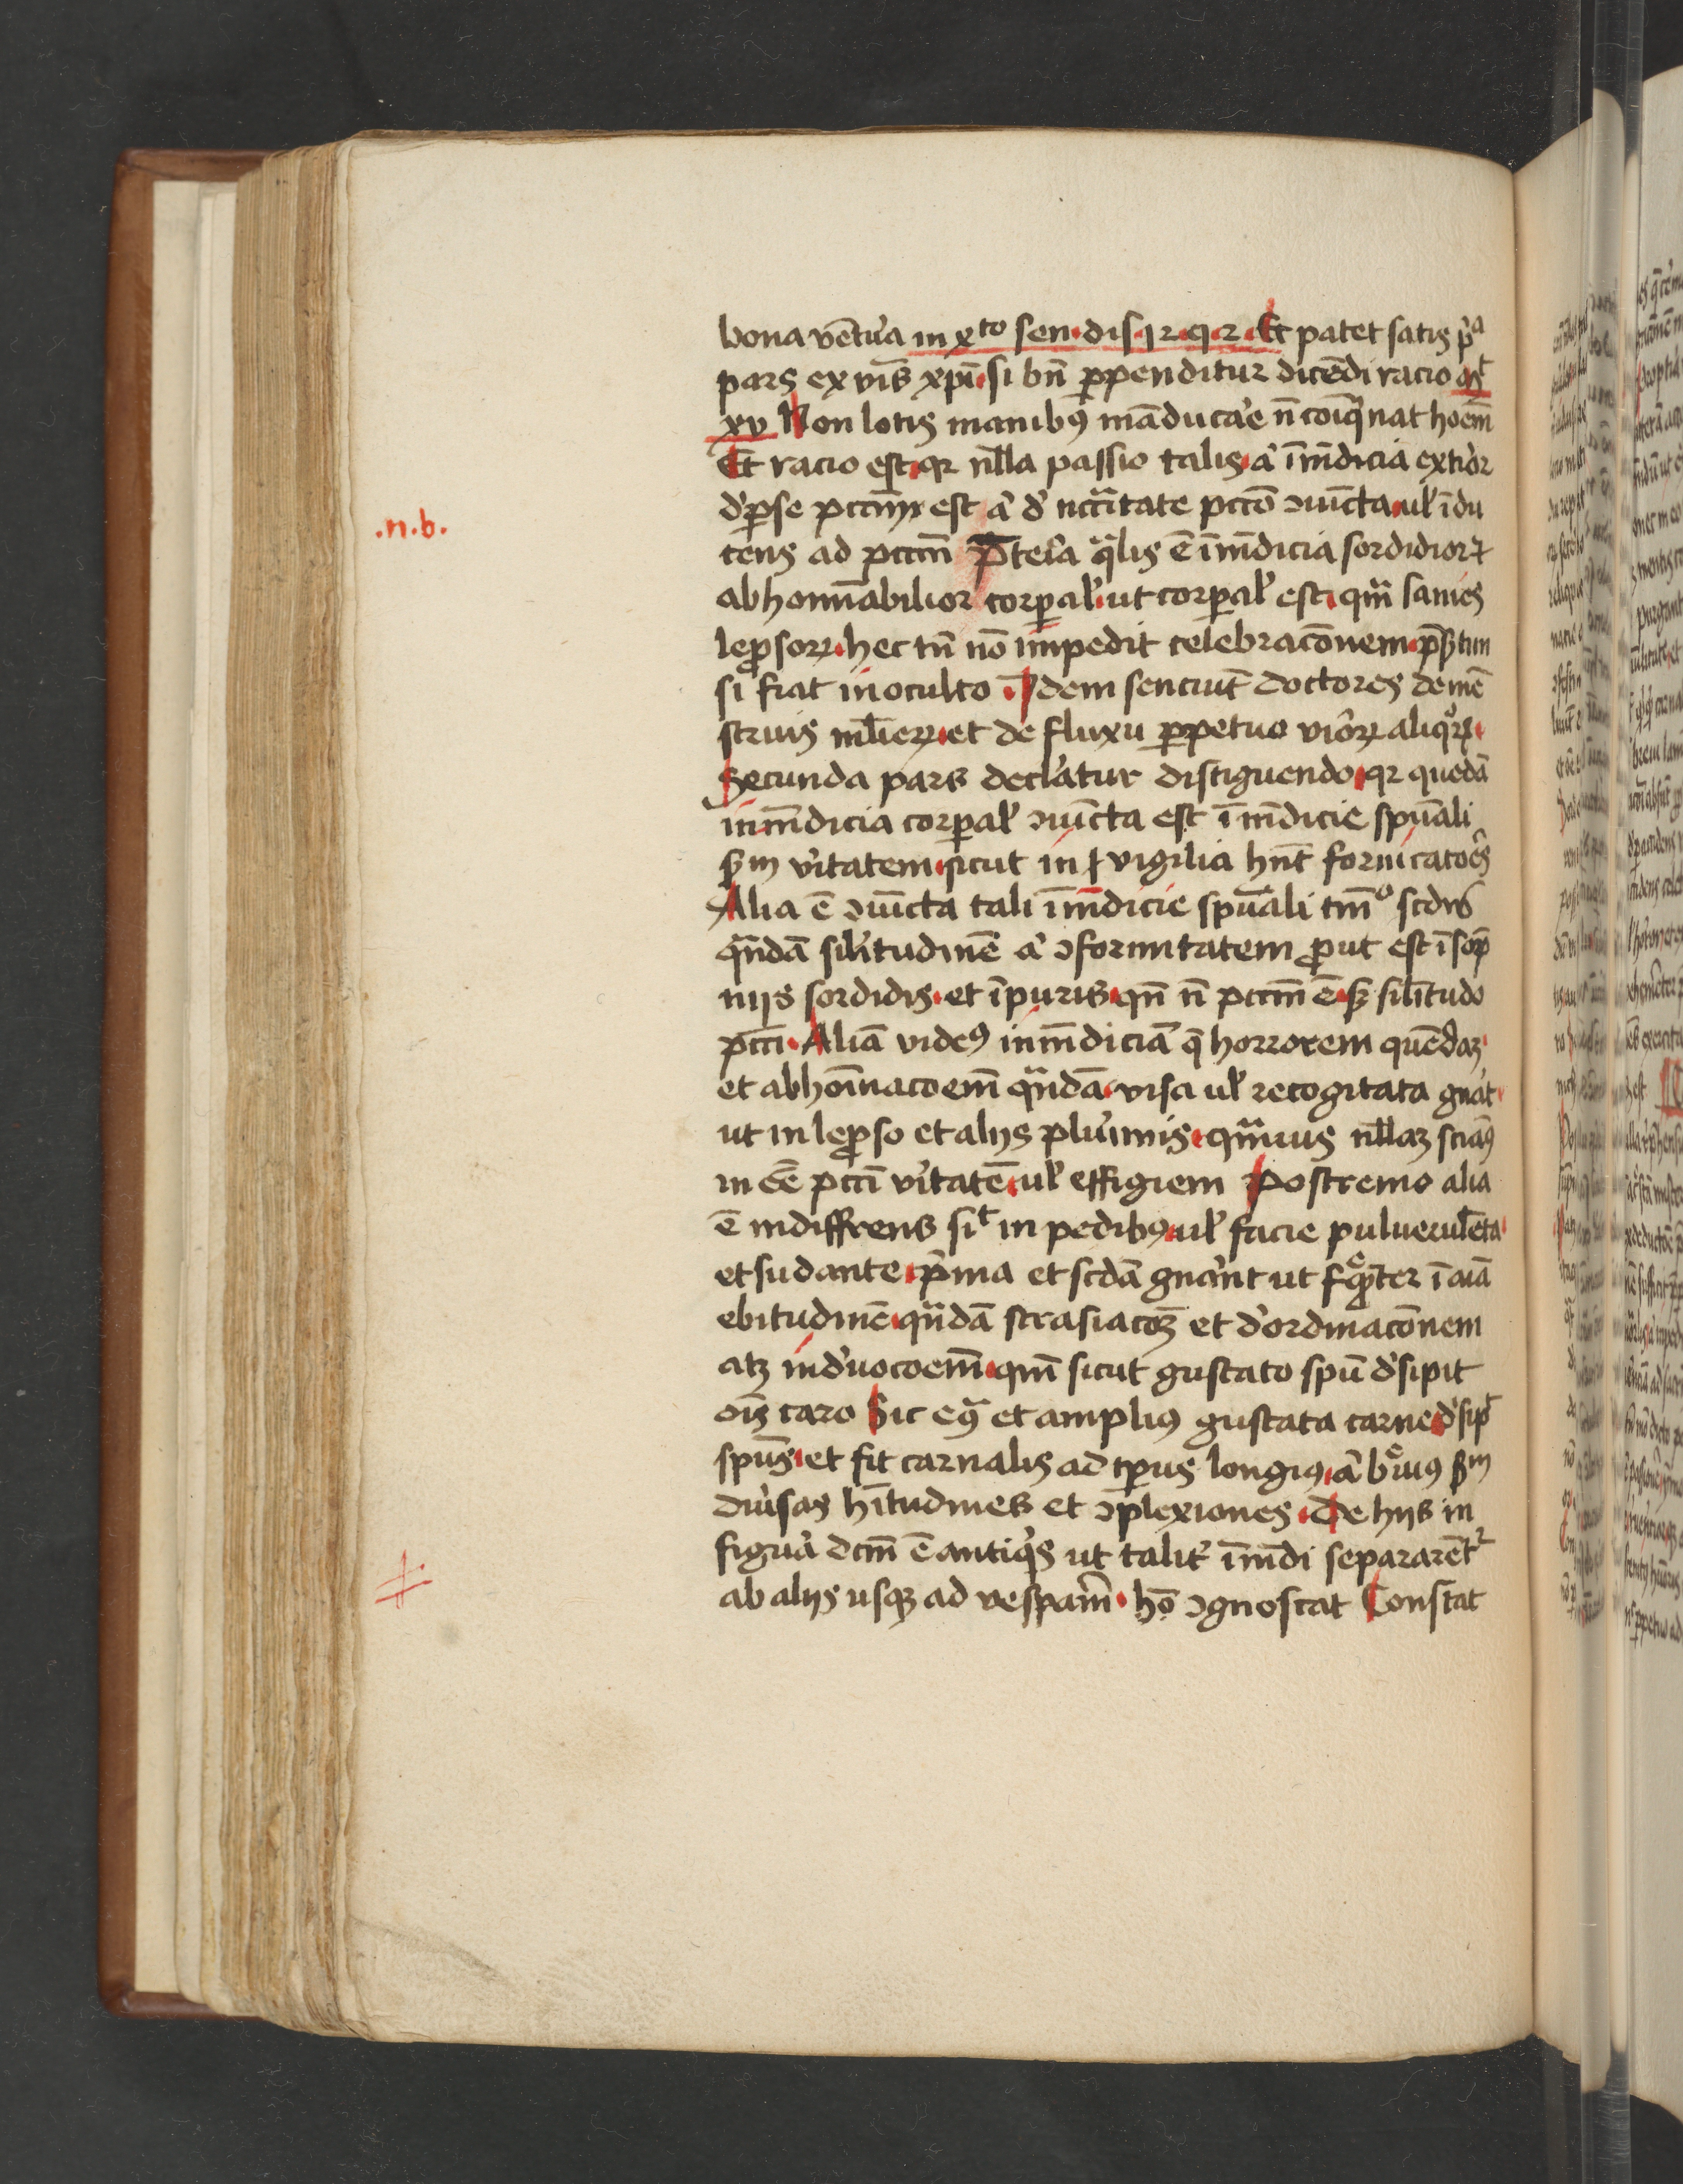 bona vētu᷑a in xto sen· dis· 12· q· 2· Et patet satis pa
pars ex v̄bis xp̄i· si bn̄ ꝑpenditur dicēdi racio mt
xv Non lotis manibꝫ māduca᷑e n̄ coīq̄nat hoēm
Et racio est· qr nl̄la passio talis· a᷑ īmūdicia exti᷑or
d᷑ ꝑ se pccm̄ est a᷑ d᷑ nccītate pccō ↄiūcta· ul᷑ īdu
.n.b.
cens ad pccm̄ P̄te᷑a q̄lis ē īmūdicia sordidior ⁊
abhominābilior corꝑal᷑· ut corꝑal᷑ est· qm̄ sanies
leꝓsorꝝ· hec tn̄ nō impedit celebracōnem· p̄s̄tim
si fiat in oculto · Idem senciūt doctores de mē
struis ml̄ierꝝ· et de fluxu ꝑpetuo vi᷑orꝝ aliq̊rꝝ·
Secunda pars decla᷑tur distīguendo· qr quedā
inmūdicia corꝑal᷑ ↄiūcta est īmūdicie spūali
ẜm v᷑itatem· sicut in vigilia hn̄t fornicato᷑es
Alia ē ↄiūcta tali īmūdicie spūali tm̄o scd̄m
qn̄dā sil᷑itudinē a᷑ ↄformitatem ꝓut est ī somp
niis sordidis· et īpuris· qn̄ n̄ pccm̄ ē· sꝫ sil̄itudo
pccī· Aliā videꝫ inmūdiciā q̄ horrorem quēdaꝫ·
et abhoīnacoēm qn̄dā· visa ul᷑ recogitata gn̄at·
ut in leꝓso et aliis plu᷑imis· qm̄vis nl̄laꝫ sciaꝫ
in eē pccī v᷑itatē· ul᷑ effigiem Postremo alia
ē indiffrens sit in pedibꝫ· ul᷑ facie puluerulēta·
et sudante· p᷑ma et scdā gn̄a᷑nt ut fq̄nter ī aīā
ebitudinē· qn̄dā et d᷑ordinacōnem
atꝫ ind᷑uocoēm· qm̄ sicut gustato spū d᷑sipit
oīs caro Sic eq̄ et ampliꝫ gustata carne· d᷑sipt
spūs· et fit carnalis ad tp̄us longiꝫ· a᷑ b᷑euiꝫ ẜm
diu᷑sas hītudines et ↄplexiones· De hiis in
figu᷑a dcm̄ ē antiq̄s ut talit᷑ īmūdi separarēt᷑
#
ab aliis usqꝫ ad vespa᷑m· hō ↄgnoscat Constat